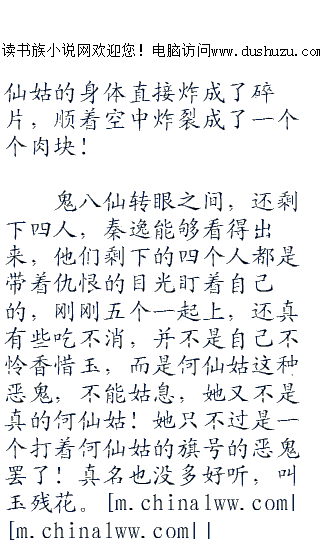 读书族小说网欢迎您！电脑访问www.dushuzu.com
仙姑的身体直接炸成了碎
片，顺着空中炸裂成了一个
个肉块！
鬼八仙转眼之间，还剩
下四人，秦逸能够看得出
来，他们剩下的四个人都是
带着仇恨的目光盯着自己
的，刚刚五个一起上，还真
有些吃不消，并不是自己不
怜香惜玉，而是何仙姑这种
恶鬼，不能姑息，她又不是
真的何仙姑！她只不过是一
个打着何仙姑的旗号的恶鬼
罢了！真名也没多好听，叫
玉残花。[m.china1ww.com|
[m.china1ww.com||